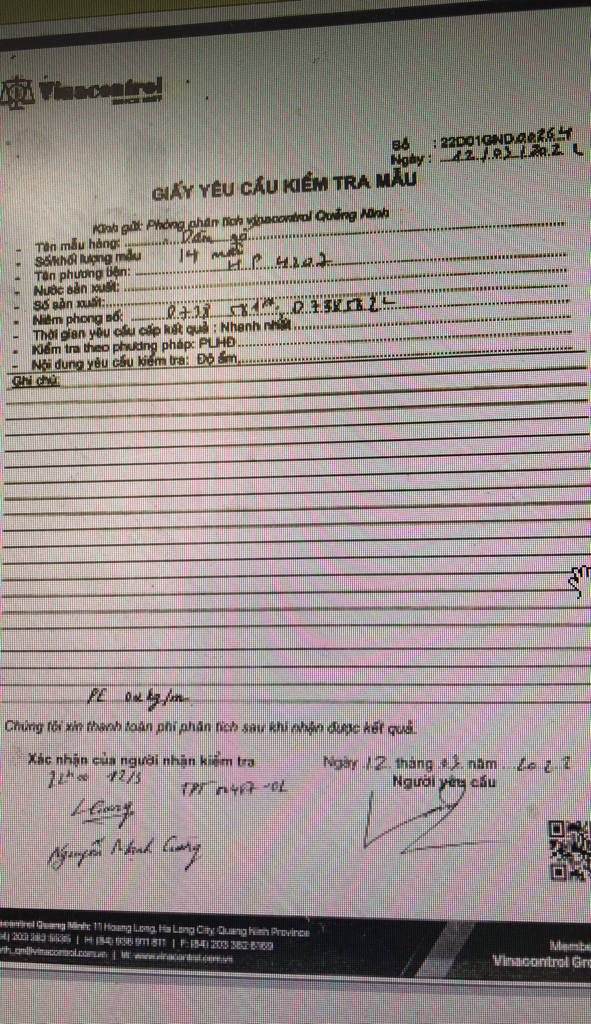 Vinacontrol
Số : 22D01GND00264
Ngày : 12/03/2022
GIẤY YÊU CẦU KIỂM TRA MẪU
Kính gửi: Phòng phân tích vinacontrol Quảng Ninh
- Tên mẫu hàng: Dăm gỗ
- Số/khối lượng mẫu 14 mẫu
- Tên phương tiện: H.P 4202
- Nước sản xuất:
- Số sản xuất:
- Niêm phong số:
- Thời gian yêu cầu cấp kết quả : Nhanh nhất
- Kiểm tra theo phương pháp: PLHĐ
- Nội dung yêu cầu kiểm tra: Độ ẩm
Ghi chú:
PE kg/m
Chúng tôi xin thanh toán phí phân tích sau khi nhận được kết quả.
Xác nhận của người nhận kiểm tra
Ngày 12 tháng 03 năm 2022
Người yêu cầu
12/3
Nguyễn Mạnh Cường
Quang Ninh: 11 Hoang Long, Ha Long City, Quang Ninh Province
| H: (84) 936 911 811 | F: (84) 203 382 6169
@vinacontrol.com.vn | W: www.vinacontrol.com.vn
Membe
Vinacontrol Gro